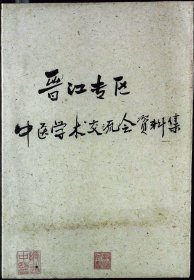 晋江专区
中医学术交流会资料集